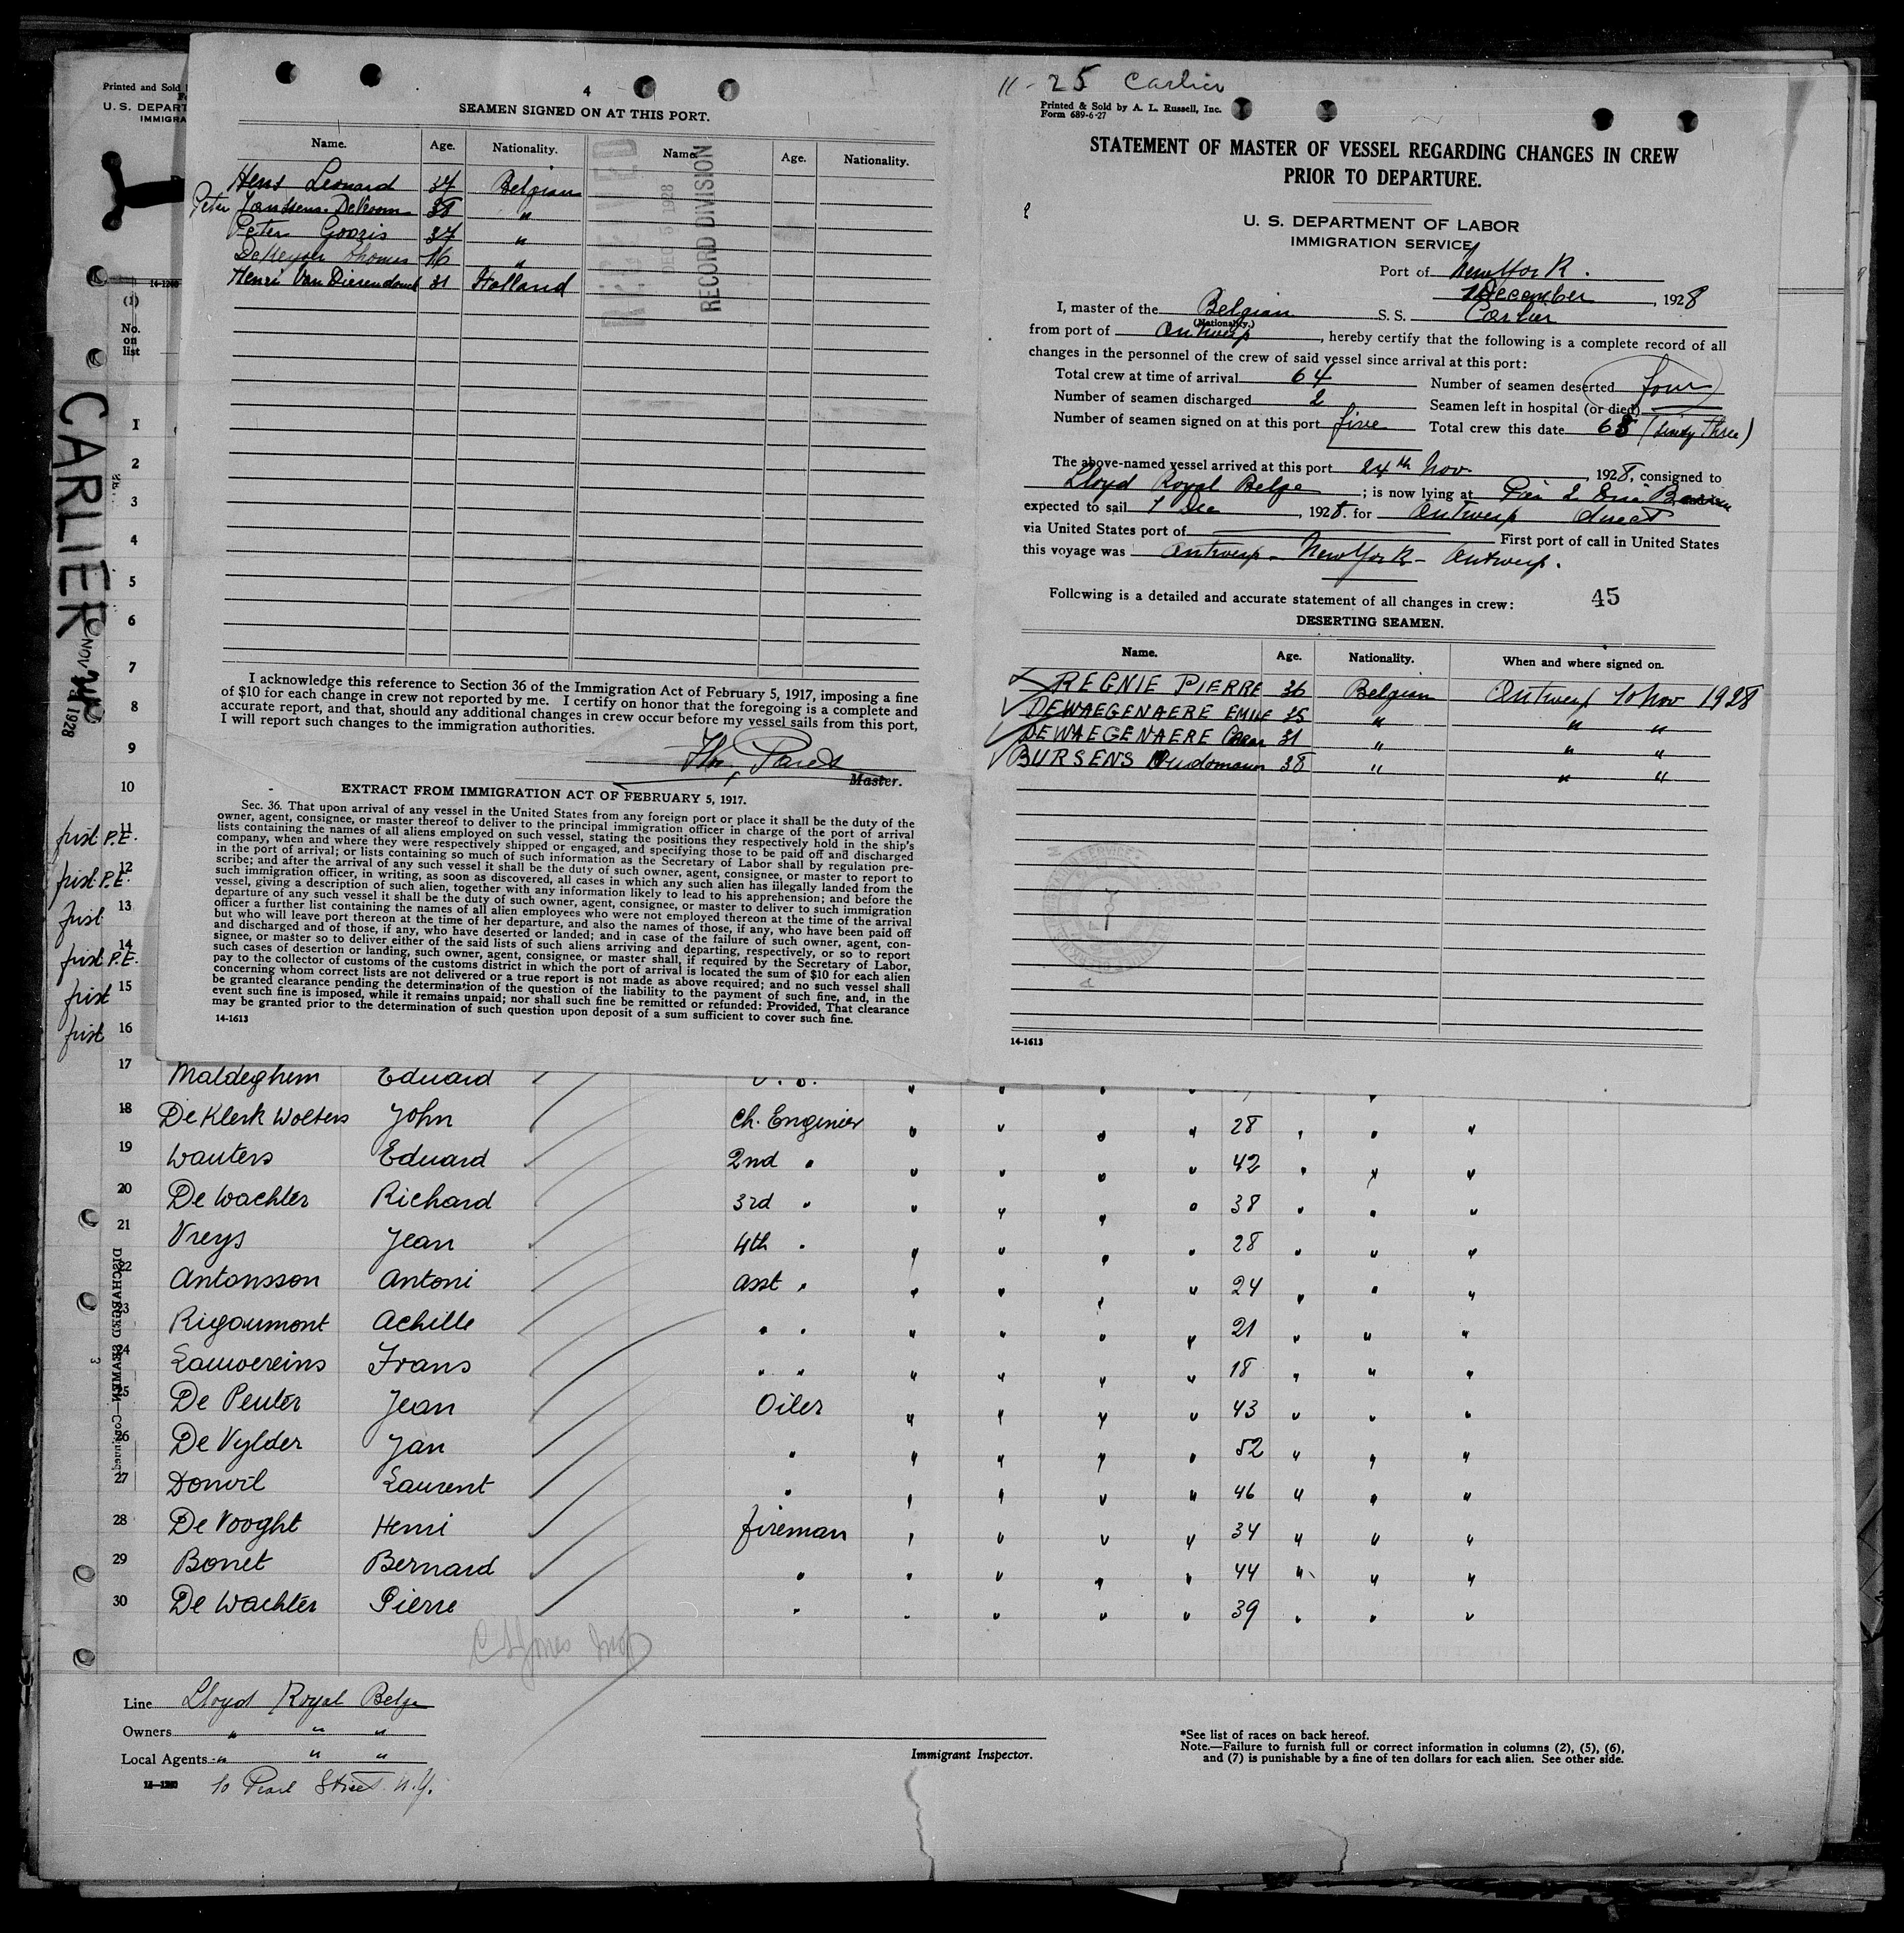 Printed and Sold
U. S. DEPART
IMMIGRA
14-1240
(1)
No.
on
list
CARLIER
NOV 24 1928
4
SEAMEN SIGNED ON AT THIS PORT.
Name. Age. Nationality. Name. Age. Nationality.
Hens Leonard 37 Belgian
Peter Janssens 38 "
Peter Gooris 37 "
Thomas 16 "
Henri Van Dierendonck 31 Holland
RECEIVED
DEC 5 1928
RECORD DIVISION
I acknowledge this reference to Section 36 of the Immigration Act of February 5, 1917, imposing a fine
of $10 for each change in crew not reported by me. I certify on honor that the foregoing is a complete and
accurate report, and that, should any additional changes in crew occur before my vessel sails from this port,
I will report such changes to the immigration authorities.
Master.
EXTRACT FROM IMMIGRATION ACT OF FEBRUARY 5, 1917.
Sec. 36. That upon arrival of any vessel in the United States from any foreign port or place it shall be the duty of the
owner, agent, consignee, or master thereof to deliver to the principal immigration officer in charge of the port of arrival
lists containing the names of all aliens employed on such vessel, stating the positions they respectively hold in the ship's
company, when and where they were respectively shipped or engaged, and specifying those to be paid off and discharged
in the port of arrival; or lists containing so much of such information as the Secretary of Labor shall by regulation pre-
scribe; and after the arrival of any such vessel it shall be the duty of such owner, agent, consignee, or master to report to
such immigration officer, in writing, as soon as discovered, all cases in which any such alien has illegally landed from the
vessel, giving a description of such alien, together with any information likely to lead to his apprehension; and before the
departure of any such vessel it shall be the duty of such owner, agent, consignee, or master to deliver to such immigration
officer a further list containing the names of all alien employees who were not employed thereon at the time of the arrival
but who will leave port thereon at the time of her departure, and also the names of those, if any, who have been paid off
and discharged and of those, if any, who have deserted or landed; and in case of the failure of such owner, agent, con-
signee, or master so to deliver either of the said lists of such aliens arriving and departing, respectively, or so to report
such cases of desertion or landing, such owner, agent, consignee, or master shall, if required by the Secretary of Labor,
pay to the collector of customs of the customs district in which the port of arrival is located the sum of $10 for each alien
concerning whom correct lists are not delivered or a true report is not made as above required; and no such vessel shall
be granted clearance pending the determination of the question of the liability to the payment of such fine, and, in the
event such fine is imposed, while it remains unpaid; nor shall such fine be remitted or refunded: Provided, That clearance
may be granted prior to the determination of such question upon deposit of a sum sufficient to cover such fine.
14-1613
11 - 25 Carlier
Printed & Sold by A. L. Russell, Inc.
Form 689-6-27
STATEMENT OF MASTER OF VESSEL REGARDING CHANGES IN CREW
PRIOR TO DEPARTURE.
U. S. DEPARTMENT OF LABOR
IMMIGRATION SERVICE
Port of New York.
1 December, 1928
I, master of the Belgian S. S. Carlier
(Nationality.)
from port of Antwerp, hereby certify that the following is a complete record of all
changes in the personnel of the crew of said vessel since arrival at this port:
Total crew at time of arrival 64 Number of seamen deserted four
Number of seamen discharged 2 Seamen left in hospital (or died)
Number of seamen signed on at this port five Total crew this date 63 (sixty three)
The above-named vessel arrived at this port 24th Nov, 1928, consigned to
Lloyd Royal Belge; is now lying at Pier 2 Erie Basin
expected to sail 1 Dec, 1928. for Antwerp direct
via United States port of First port of call in United States
this voyage was Antwerp - New York - Antwerp.
Following is a detailed and accurate statement of all changes in crew: 45
DESERTING SEAMEN.
Name. Age. Nationality. When and where signed on.
REGNIE PIERRE 36 Belgian Antwerp 10 Nov 1928
DEWAEGENAERE EMILE 35 " " "
DEWAEGENAERE Oscar 31 " " "
BURSENS 38 " " "
14-1613
1
2
3
4
5
6
7
8
9
10
11 first P.E.
12 first P.E.
13 first
14 first P.E.
15 first
16 first
17 Maldeghem Eduard " " " "
18 De Klerk Wolters John Ch. Enginier " " " " 28 " " "
19 Wauters Eduard 2nd " " " " " 42 " " "
20 De Wachter Richard 3rd " " " " " 38 " " "
21 Vreys Jean 4th " " " " " 28 " " "
22 Antonsson Antoni asst " " " " " 24 " " "
23 Rigaumont Achille " " " " " " 21 " " "
24 Lauwereins Frans " " " " " " 18 " " "
25 De Peuter Jean Oiler " " " " 43 " " "
26 De Vylder Jan " " " " " 52 " " "
27 Donvil Laurent " " " " " 46 " " "
28 De Vooght Henri fireman " " " " 34 " " "
29 Bonet Bernard " " " " " 44 " " "
30 De Wachter Pierre " " " " " 39 " " "
DISCHARGED SEAMEN—Continued
3
Line Lloyd Royal Belge
Owners " " "
Local Agents " " "
14-1240 10 Pearl Street N.Y.
Immigrant Inspector.
*See list of races on back hereof.
Note.—Failure to furnish full or correct information in columns (2), (5), (6),
and (7) is punishable by a fine of ten dollars for each alien. See other side.